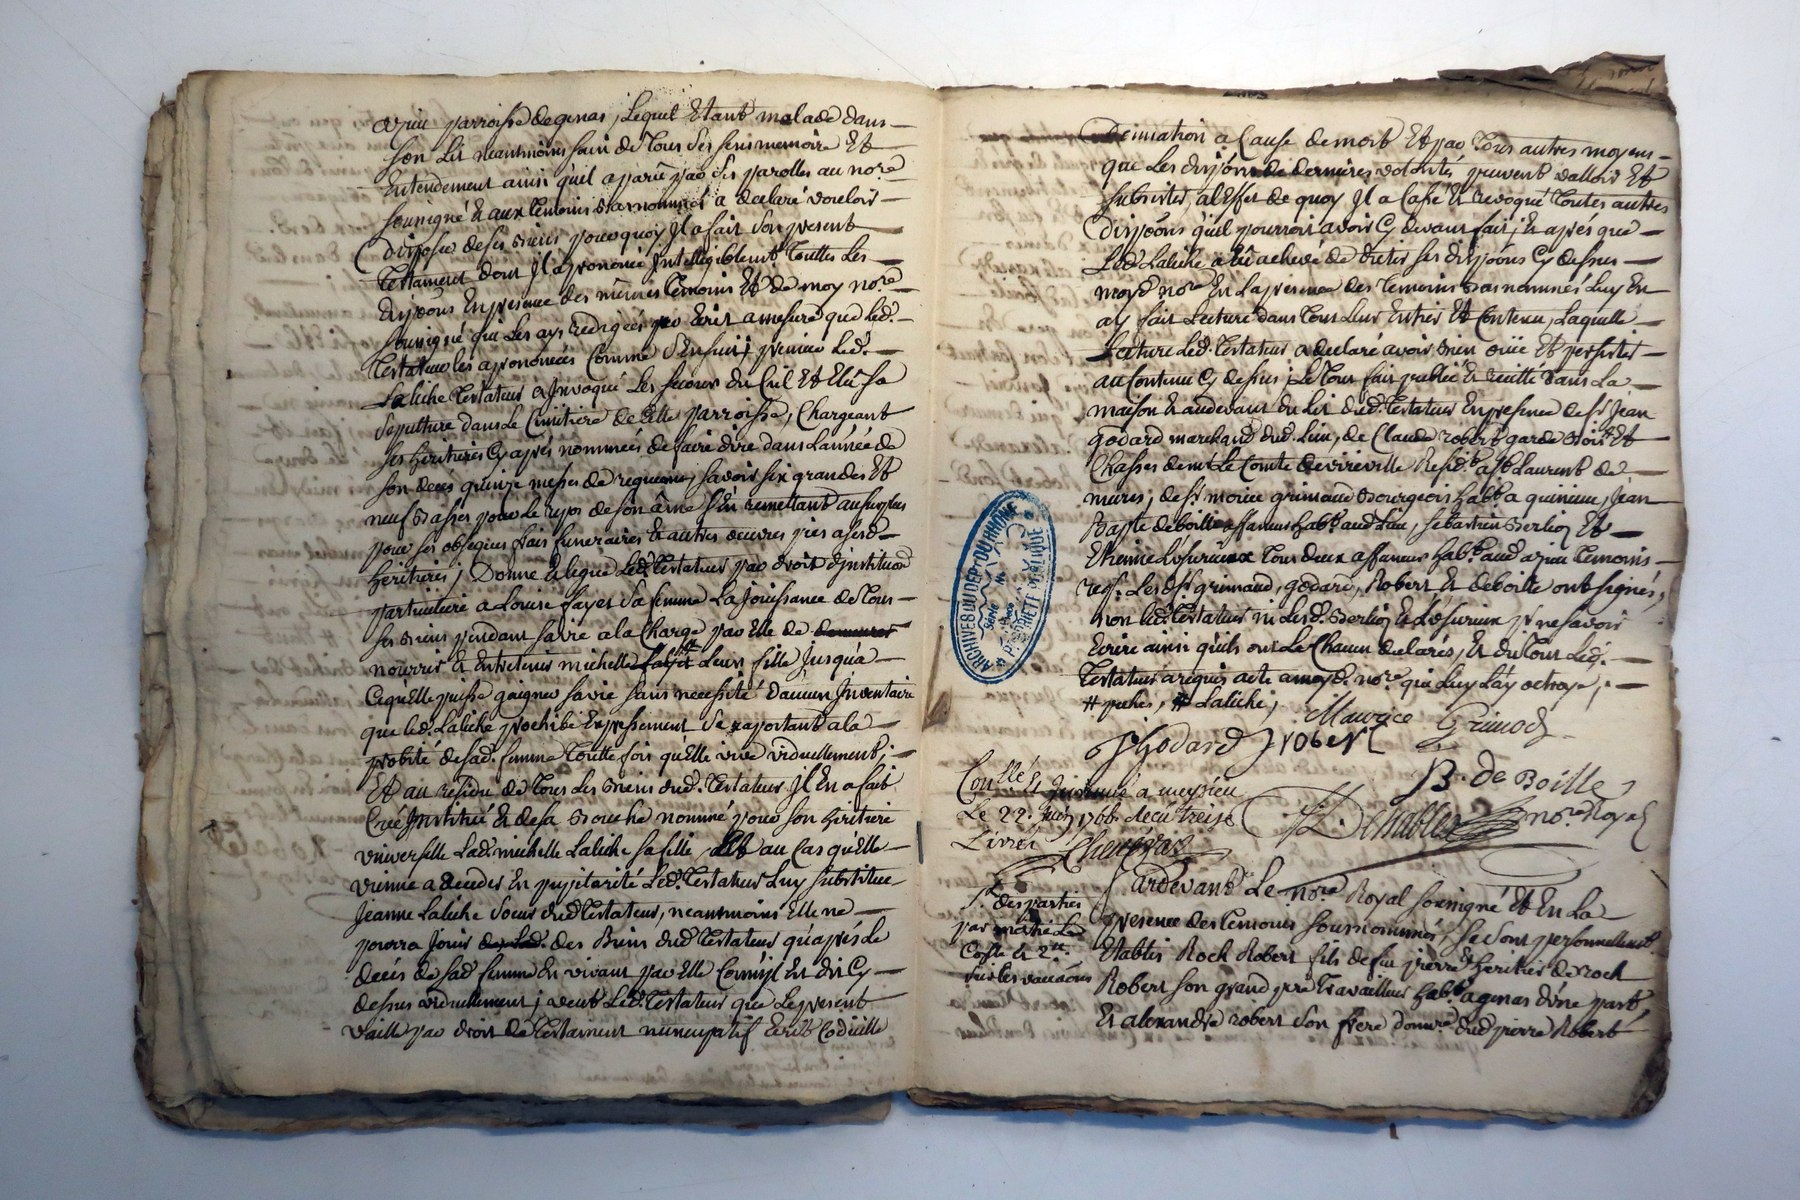 azieu parroisse de genas, Lequel Etant malade dans
son Lit neantmoins sain de Tous ses sens memoire Et
Entendement ainsi quil a paru par ses parolles au nore
soussigné & aux Temoins Basnommés a declaré vouloir
Disposer de ses Biens pourquoy Jl a fait Son present
Testament dont Jl a prononcé Jntelligiblemt Touttes Les
dispoons En presence des mêmes Temoins Et de moy nore
soussigné qui Les ay redigées par Ecrit a mesure que led.
Testateur les a prononcées Comme s'Ensuit; premier Led.
Laliche Testateur a Jnvoqué Les secours du Ciel Et Elû sa
sepulture dans Le Cimitiere de cette parroisse, Chargeant
ses heritieres Cy aprés nommées de faire dire dans L'année de
son decés quinze messes de requiem, savoir six grandes Et
neuf Basses pour le repos de son âme s'En remettant au surplus
pour ses obseques frais funeraires & autres oeuvres pies a sesd.
heritieres; Donne & legue Led. Testateur par droit d'institution
particuliere a Louise fayet sa femme La Jouissance de Tous
ses Biens pendant sa vie a la Charge par Elle de demeurer
nourrir & Entretenir michelle Leur fille Jusqu'a
Ce qu'Elle puisse gaigner sa vie sans necessité d'aucun Jnventaire
que led. Laliche prohibe Expressement se raportant a la
probité de sad. femme Toutte fois qu'Elle vive viduellement;
Et au residu de Tous Les Biens dud. Testateur Jl En a fait
Créé Jnstitué & de sa Bouche nommé pour son heritiere
universelle Lad. michelle Laliche sa fille, Et au Cas qu'Elle
vienne a deceder En pupilarité Led. Testateur Luy substitue
Jeanne Laliche soeur dud Testateur, neantmoins Elle ne
pourra Jouir des Biens dud Testateur qu'aprés Le
decés de sad femme En vivant par Elle Comme Jl Est dit Cy
dessus viduellement; veut Led. Testateur que Le present
vaille par droit de Testament nuncupatif Ecrit Codicille
Donnation a Cause de mort Et par Tous autres moyens
que Les dispoons de dernieres volontés peuvent valloir Et
subsister, a l'Effet de quoy Jl a Cassé & revoqué Toutes autres
Dispoons qu'il pourroit avoir Cy devant fait; & aprés que
Led. Laliche a Eû achevé de dicter ses dispoons Cy dessus
moyd. nore En La presence des Temoins Basnommés Luy En
ay fait Lecture dans Tout Leur Entier Et Contenu, Laquelle
Lecture Led. Testateur a declaré avoir Bien oüie Et persister
au Contenu Cy dessus; Le Tout fait publié & recitté dans La
maison & audevant du Lit dud. Testateur En presence de sr Jean
godard marchand dud. Lieu, de Claude robert garde Bois Et
Chasses de mr Le Comte de virieville Resid. a st Laurent de
mures, de sr morice grimaud Bourgeois habt. a quirieu, Jean
Bapte deboille affaneur habt. aud. Lieu, sebastien Berlioz Et
Etienne Tous deux affaneurs habt. aud azieu Temoins
reqs. Les ds. sr grimaud, godard, Robert & deboille ont signés,
non led. Testateur ni Lesd. Berlioz & pr ne savoir
Ecrire ainsi qu'ils ont Le Chacun declarés, & du Tout Led.
Testateur a requis acte a moyd. nore qui Luy L'ay octroyé,
# # Laliche,
Maurice Grimod
J Godard J robert
B. de Boille
Conllé & Jnsinué a meysieu
Le 22. Juin 1766. Recu treize
Livres
nore Royal
ARCHIVES DU DEP. DU RHÔNE
PROPRIÉTÉ PUBLIQUE
Pardevant Le nore Royal soussigné Et En La
presence des Temoins sousnommés, se sont personnellemt
Etablis Roch Robert fils de feu pierre & heritier de roch
Robert son grand pere Travailleur habt. a genas d'une part
Et alexandre robert son frere donnre. dud pierre Robert
des parties